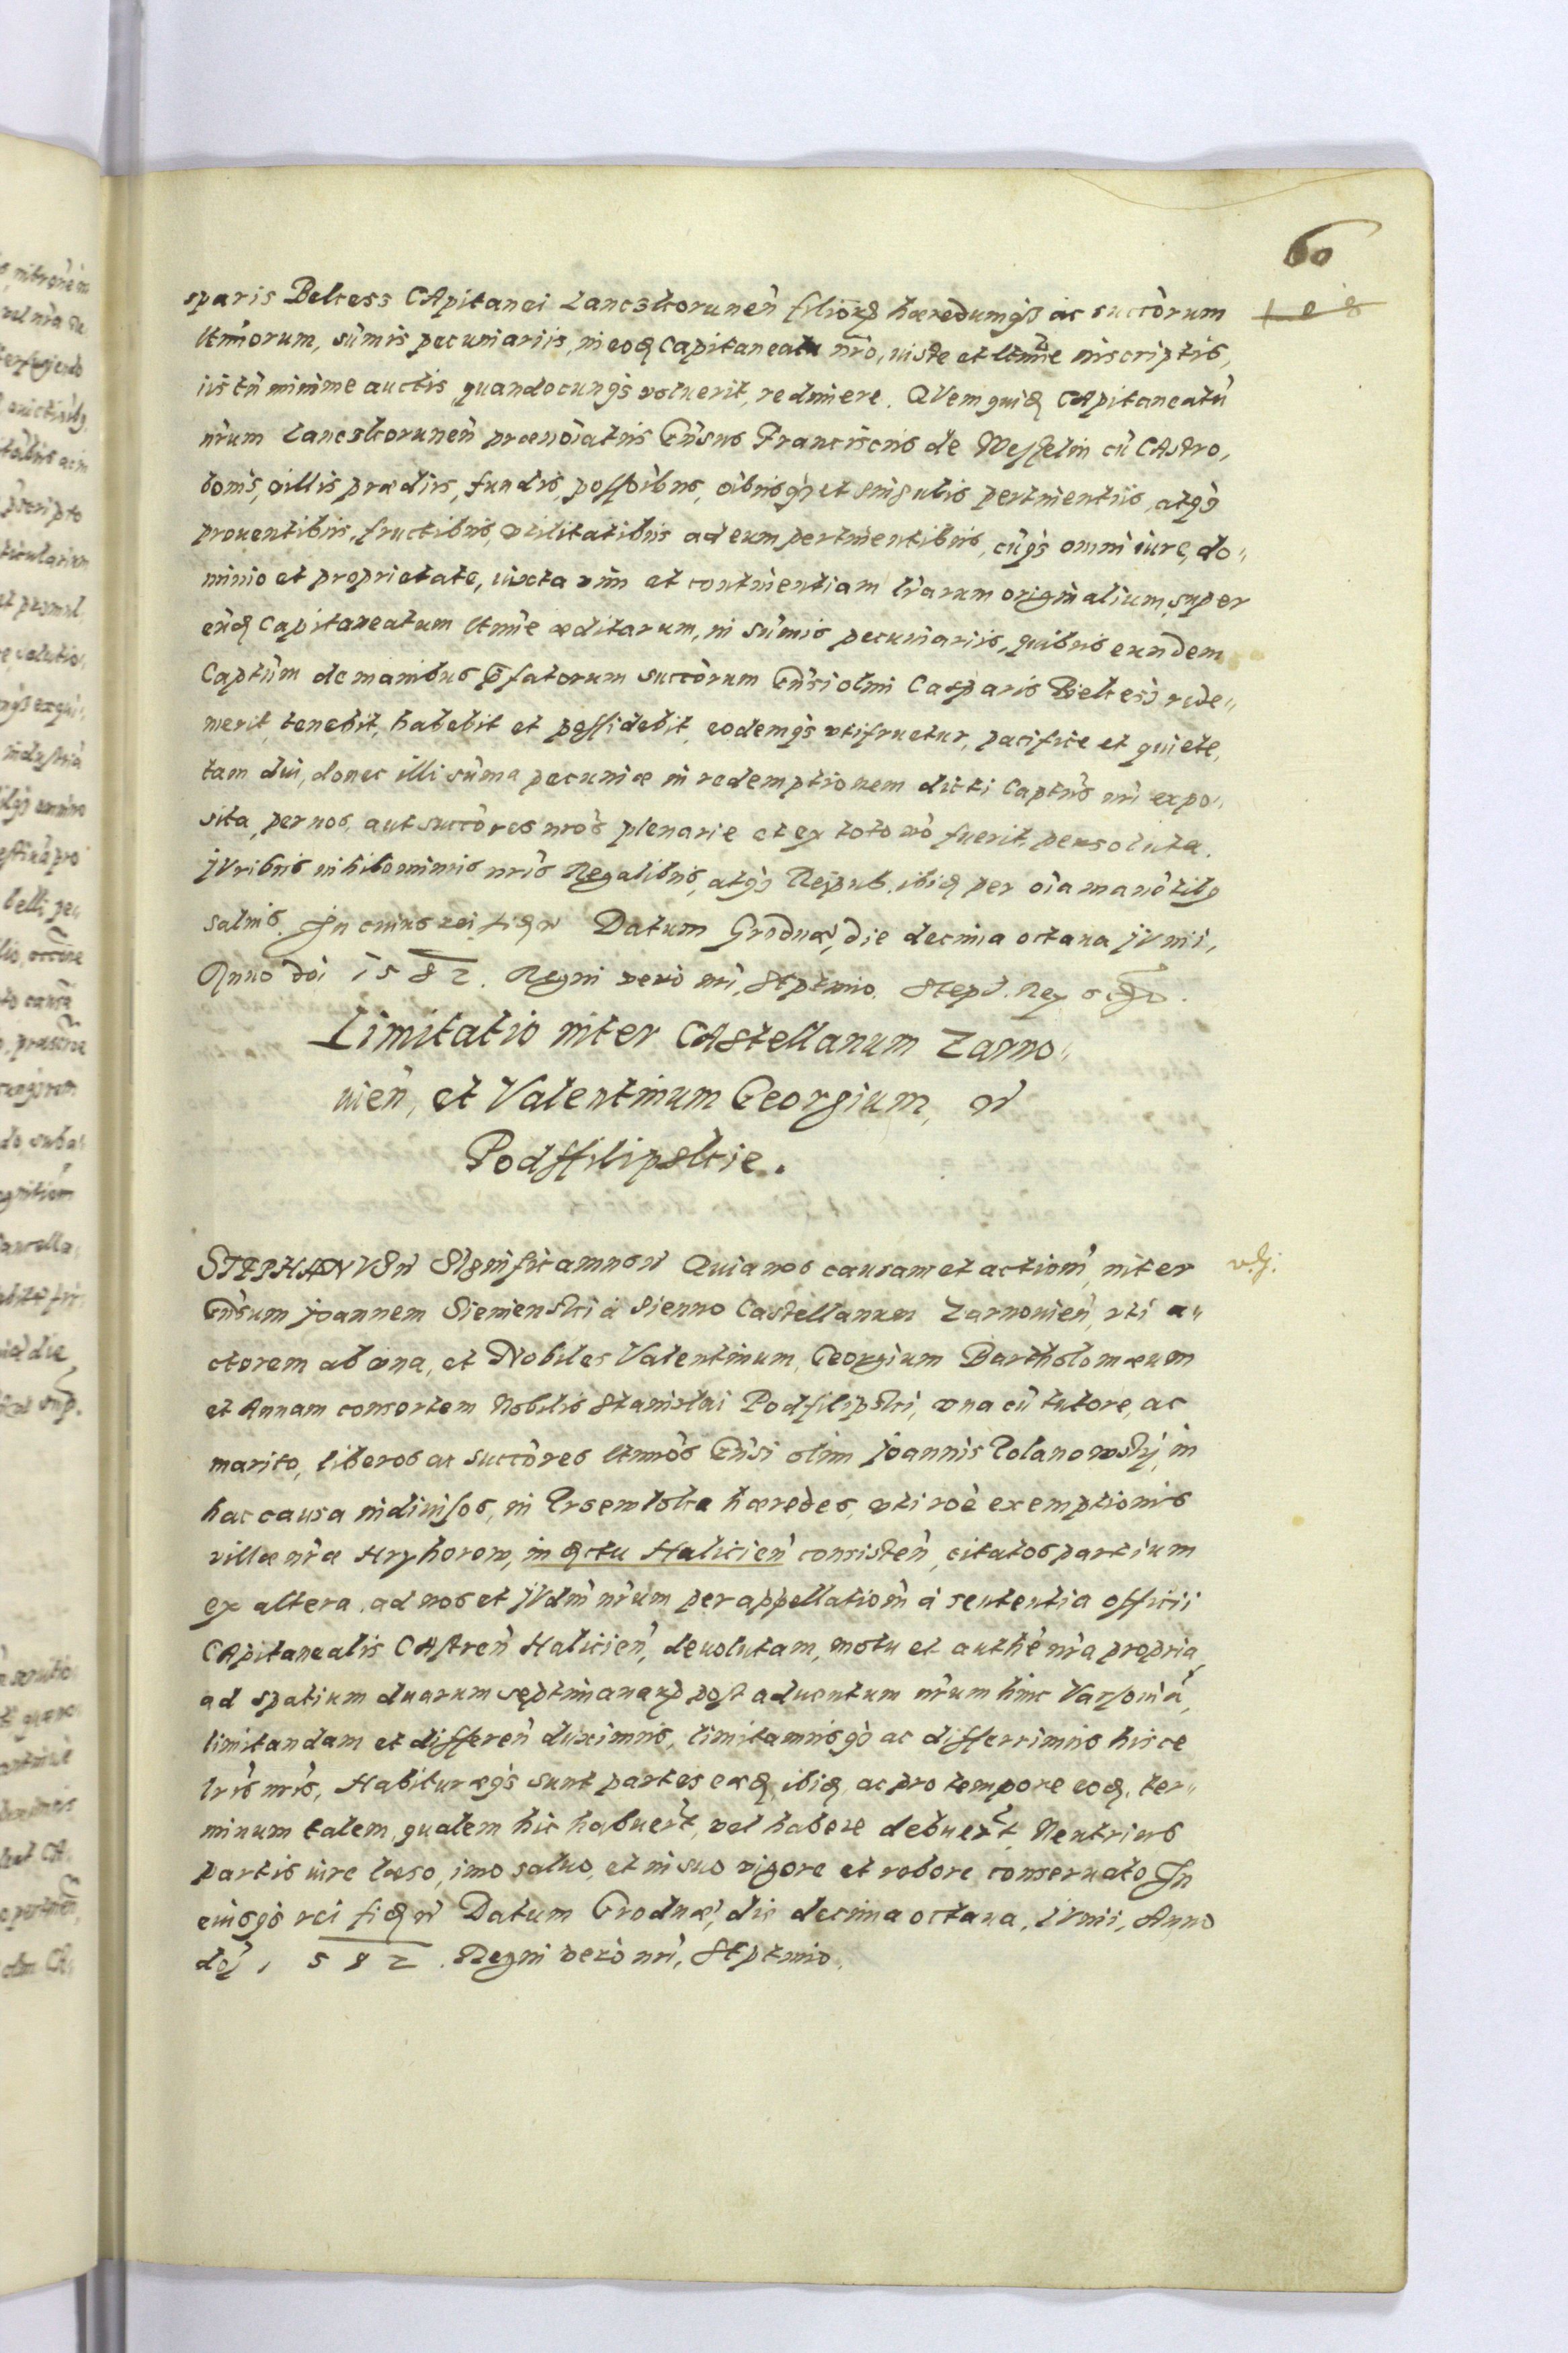 60
sparis Bekess CApitanei Lanczkorunen̄ filior̄ hæredumq3 ac succ̄orum
ltm̄iorum, sum̄is pecuniariis, in eod. Capitaneatu nr̄o, iuste et ltm̄e inscriptis,
iis tn̄ minime auctis, quandocunq3 voluerit, redimere. QVem quid. CApitaneatū
nr̄um Lanczkorunen̄ prænoīatus Gn̄sus Franciscus de Wesselin cū CAstro,
bonis, villis prædiis, fundis, poss̄oibus, oībusq3 et singulis pertinentiis, atq3
prouentibus, fructibus, vtilitatibus ad eum pertinentibus, cūq3 omni iure, do„
minio et proprietate, iuxta vim et continentiam lr̄arum originalium, super
eūd. Capitaneatum ltm̄e æditarum, in sum̄is pecuniariis, quibus eundem
Captūm de manibus p̄fatorum succ̄orum Gn̄si olim Casparis Bekesi rede„
merit, tenebit, habebit et possidebit, eodemq3 vtifruetur, pacifice et quiete,
tam diu, donec illi sum̄a pecuniæ in redemptionem dicti Captūs nr̄i expo„
sita, per nos, aut succ̄ores nr̄os plenarie et ex toto nō fuerit persoluta.
JVribus nihilominus nr̄is Regalibus, atq3 Reipub. ibid. per oīa manētib9
saluis. In cuius rei fid. &c Datum Grodnæ, die decima octaua JVnii,
Anno dn̄i 1582. Regni vero nr̄i, Septimo. Steph. Rex sst.
Limitatio inter CAstellanum Zarno„
uien̄, et Valentinum Georgium, &c
Podffilipskie.
STEPHANVS &c Significamus &c Quia nos causam et action̄, inter
Gn̄sum Joannem Sienienski à Sienno Castellanum Zarnouien̄, vti a„
ctorem ab vna, et Nobiles Valentinum, Georgium Bartholomæum
et Annam consortem Nobilis Stanislai Podfilipski, vna cū tutore, ac
marito, liberos ac succ̄ores ltm̄os Gn̄si olim Joannis Polanowskÿ, in
hac causa indiuisos, in hæredes, vti rōe exemptionis
villæ nr̄æ Hryhorow, in dctu Halicien̄ consisten̄, citatos partium
ex altera, ad nos et JVdm̄ nr̄um per appellation̄ à sententia officii
CApitanealis CAstren̄ Halicien̄, deuolutam, motu et authē nr̄a propria,
ad spatium duarum septimanar̄ post aduentum nr̄um hinc Varsouiā,
limitandam et differen̄ duximus, limitamusq3 ac differrimus hisce
lr̄is nr̄is, Habituræq3 sunt partes eæd. ibid. ac pro tempore eod. ter„
minum talem, qualem hic habuer̄t, vel habere debuer̄t Neutrius
partis iure læso, imo saluo, et in suo vigore et robore conseruato In
cuiusq3 rei fid. &c Datum Grodnæ, die decima octaua, JVnii, Anno
dn̄i 1582. Regni vero nr̄i, Septimo.